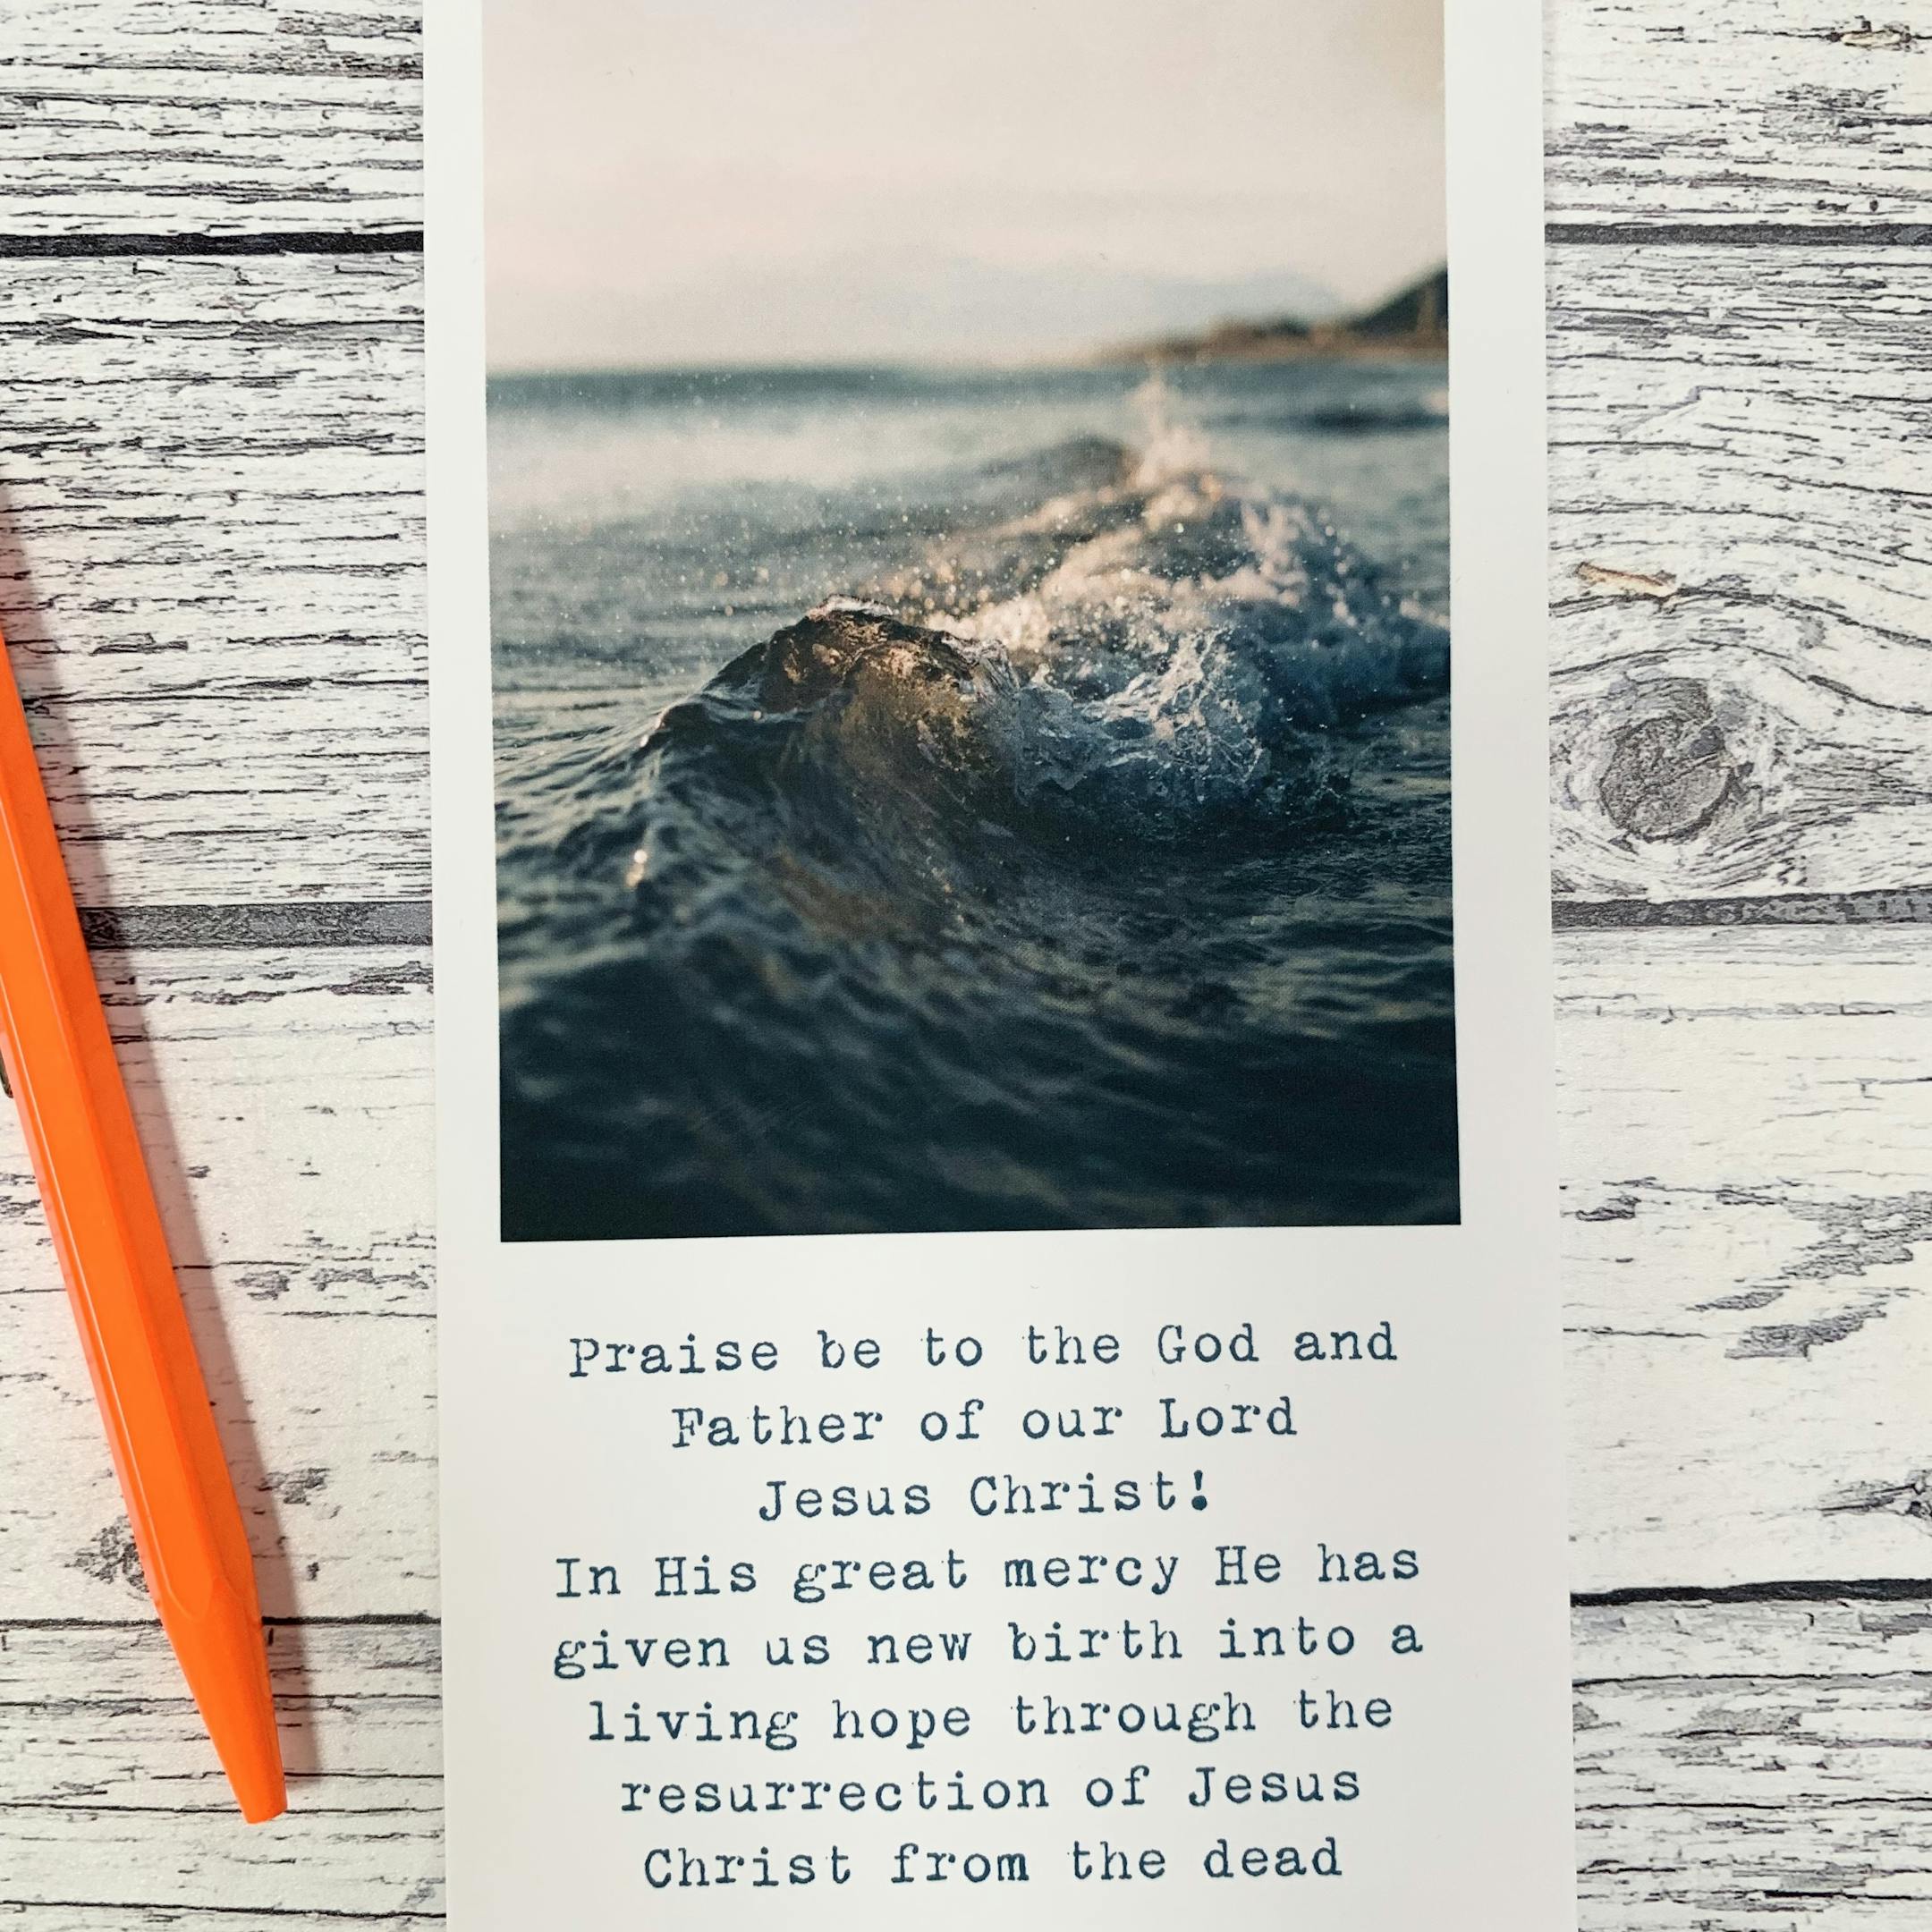 Praise be to the God and
Father of our Lord
Jesus Christ!
In His great mercy He has
given us new birth into a
living hope through the
resurrection of Jesus
Christ from the dead